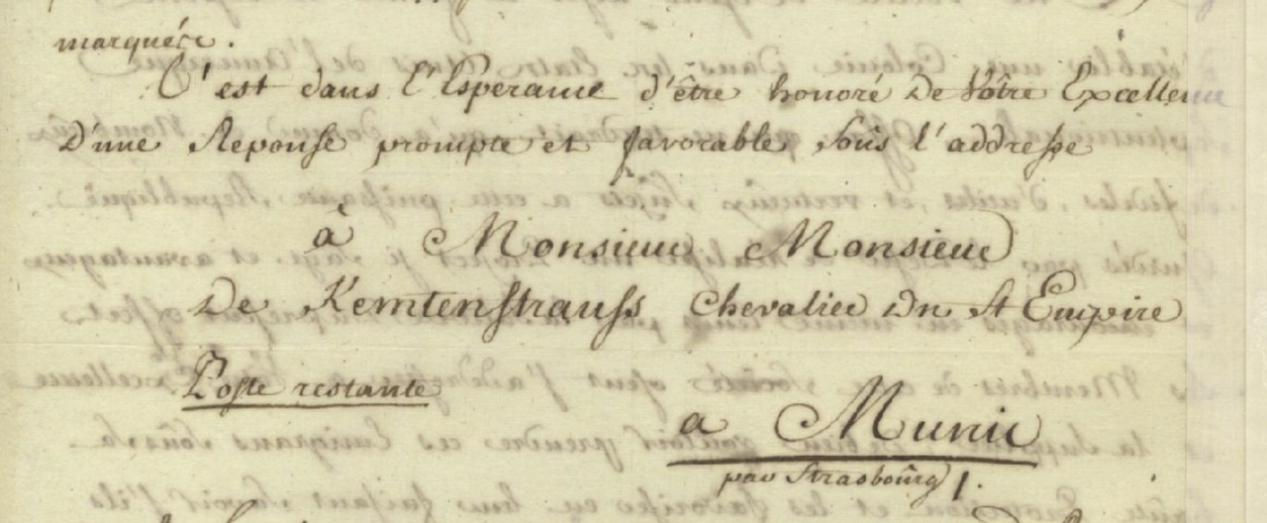 marquée.
C'est dans l'Esperance d'être honoré De Vôtre Excellence
D'une Reponse prompte et favorable sous l'addresse
à Monsieur Monsieur
De Kemtenstrauss Chevalier Du St Empire
Poste restante
a Munic
par Strasbourg